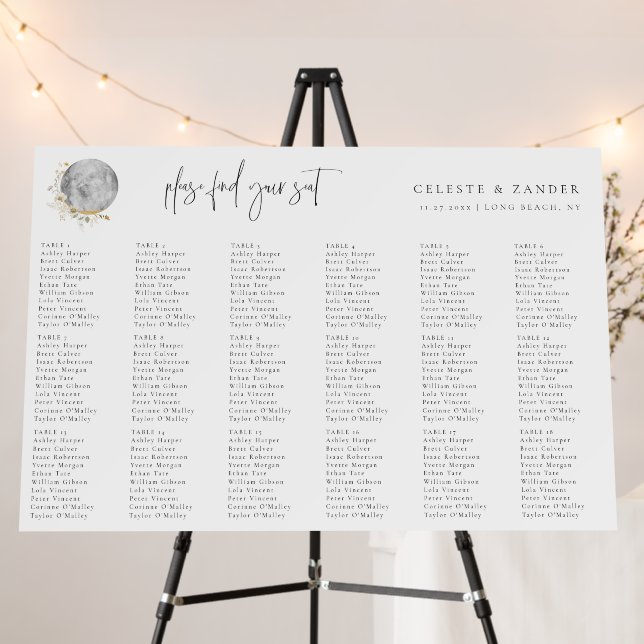 please find your seat
CELESTE & ZANDER
11.27.20XX | LONG BEACH, NY
TABLE 1
Ashley Harper
Brett Culver
Isaac Robertson
Yvette Morgan
Ethan Tate
William Gibson
Lola Vincent
Peter Vincent
Corinne O'Malley
Taylor O'Malley
TABLE 2
Ashley Harper
Brett Culver
Isaac Robertson
Yvette Morgan
Ethan Tate
William Gibson
Lola Vincent
Peter Vincent
Corinne O'Malley
Taylor O'Malley
TABLE 3
Ashley Harper
Brett Culver
Isaac Robertson
Yvette Morgan
Ethan Tate
William Gibson
Lola Vincent
Peter Vincent
Corinne O'Malley
Taylor O'Malley
TABLE 4
Ashley Harper
Brett Culver
Isaac Robertson
Yvette Morgan
Ethan Tate
William Gibson
Lola Vincent
Peter Vincent
Corinne O'Malley
Taylor O'Malley
TABLE 5
Ashley Harper
Brett Culver
Isaac Robertson
Yvette Morgan
Ethan Tate
William Gibson
Lola Vincent
Peter Vincent
Corinne O'Malley
Taylor O'Malley
TABLE 6
Ashley Harper
Brett Culver
Isaac Robertson
Yvette Morgan
Ethan Tate
William Gibson
Lola Vincent
Peter Vincent
Corinne O'Malley
Taylor O'Malley
TABLE 7
Ashley Harper
Brett Culver
Isaac Robertson
Yvette Morgan
Ethan Tate
William Gibson
Lola Vincent
Peter Vincent
Corinne O'Malley
Taylor O'Malley
TABLE 8
Ashley Harper
Brett Culver
Isaac Robertson
Yvette Morgan
Ethan Tate
William Gibson
Lola Vincent
Peter Vincent
Corinne O'Malley
Taylor O'Malley
TABLE 9
Ashley Harper
Brett Culver
Isaac Robertson
Yvette Morgan
Ethan Tate
William Gibson
Lola Vincent
Peter Vincent
Corinne O'Malley
Taylor O'Malley
TABLE 10
Ashley Harper
Brett Culver
Isaac Robertson
Yvette Morgan
Ethan Tate
William Gibson
Lola Vincent
Peter Vincent
Corinne O'Malley
Taylor O'Malley
TABLE 11
Ashley Harper
Brett Culver
Isaac Robertson
Yvette Morgan
Ethan Tate
William Gibson
Lola Vincent
Peter Vincent
Corinne O'Malley
Taylor O'Malley
TABLE 12
Ashley Harper
Brett Culver
Isaac Robertson
Yvette Morgan
Ethan Tate
William Gibson
Lola Vincent
Peter Vincent
Corinne O'Malley
Taylor O'Malley
TABLE 13
Ashley Harper
Brett Culver
Isaac Robertson
Yvette Morgan
Ethan Tate
William Gibson
Lola Vincent
Peter Vincent
Corinne O'Malley
Taylor O'Malley
TABLE 14
Ashley Harper
Brett Culver
Isaac Robertson
Yvette Morgan
Ethan Tate
William Gibson
Lola Vincent
Peter Vincent
Corinne O'Malley
Taylor O'Malley
TABLE 15
Ashley Harper
Brett Culver
Isaac Robertson
Yvette Morgan
Ethan Tate
William Gibson
Lola Vincent
Peter Vincent
Corinne O'Malley
Taylor O'Malley
TABLE 16
Ashley Harper
Brett Culver
Isaac Robertson
Yvette Morgan
Ethan Tate
William Gibson
Lola Vincent
Peter Vincent
Corinne O'Malley
Taylor O'Malley
TABLE 17
Ashley Harper
Brett Culver
Isaac Robertson
Yvette Morgan
Ethan Tate
William Gibson
Lola Vincent
Peter Vincent
Corinne O'Malley
Taylor O'Malley
TABLE 18
Ashley Harper
Brett Culver
Isaac Robertson
Yvette Morgan
Ethan Tate
William Gibson
Lola Vincent
Peter Vincent
Corinne O'Malley
Taylor O'Malley